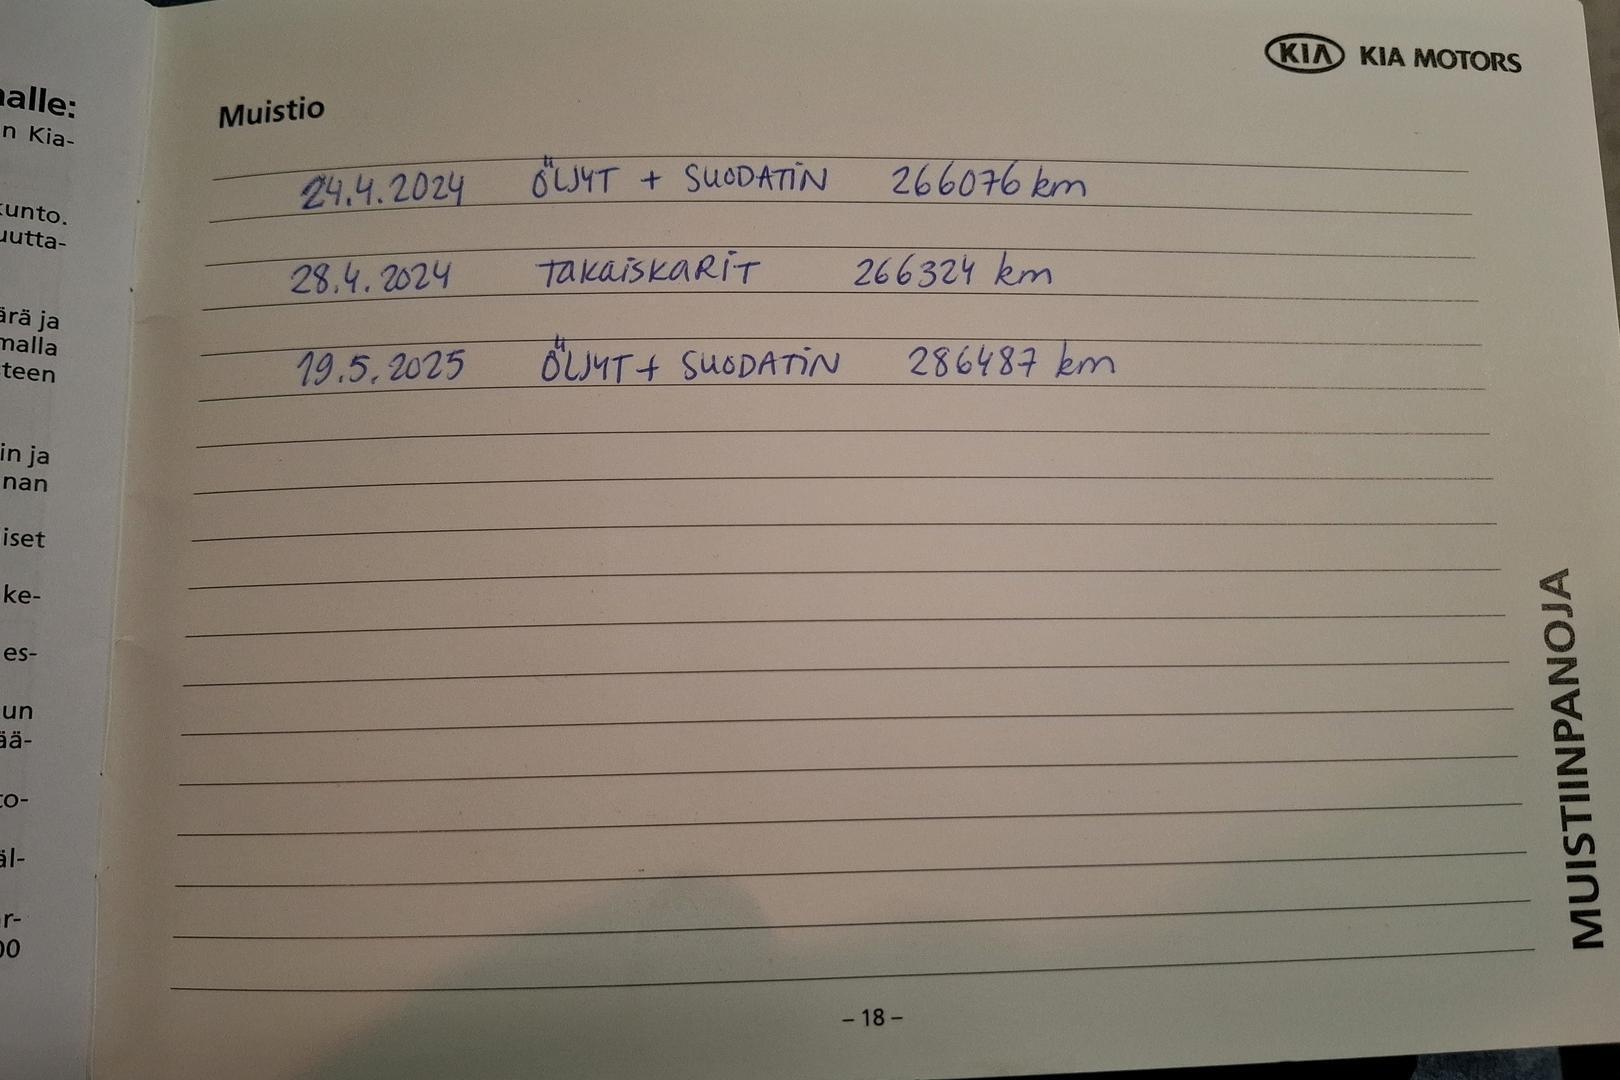 alle:
n Kia-
kunto.
uutta-
ärä ja
malla
steen
in ja
nan
iset
ke-
es-
un
ää-
to-
äl-
r-
00
KIA KIA MOTORS
Muistio
24.4.2024 ÖLJYT + SUODATIN 266076 km
28.4.2024 TAKAISKARIT 266324 km
19.5.2025 ÖLJYT + SUODATIN 286487 km
MUISTIINPANOJA
– 18 –